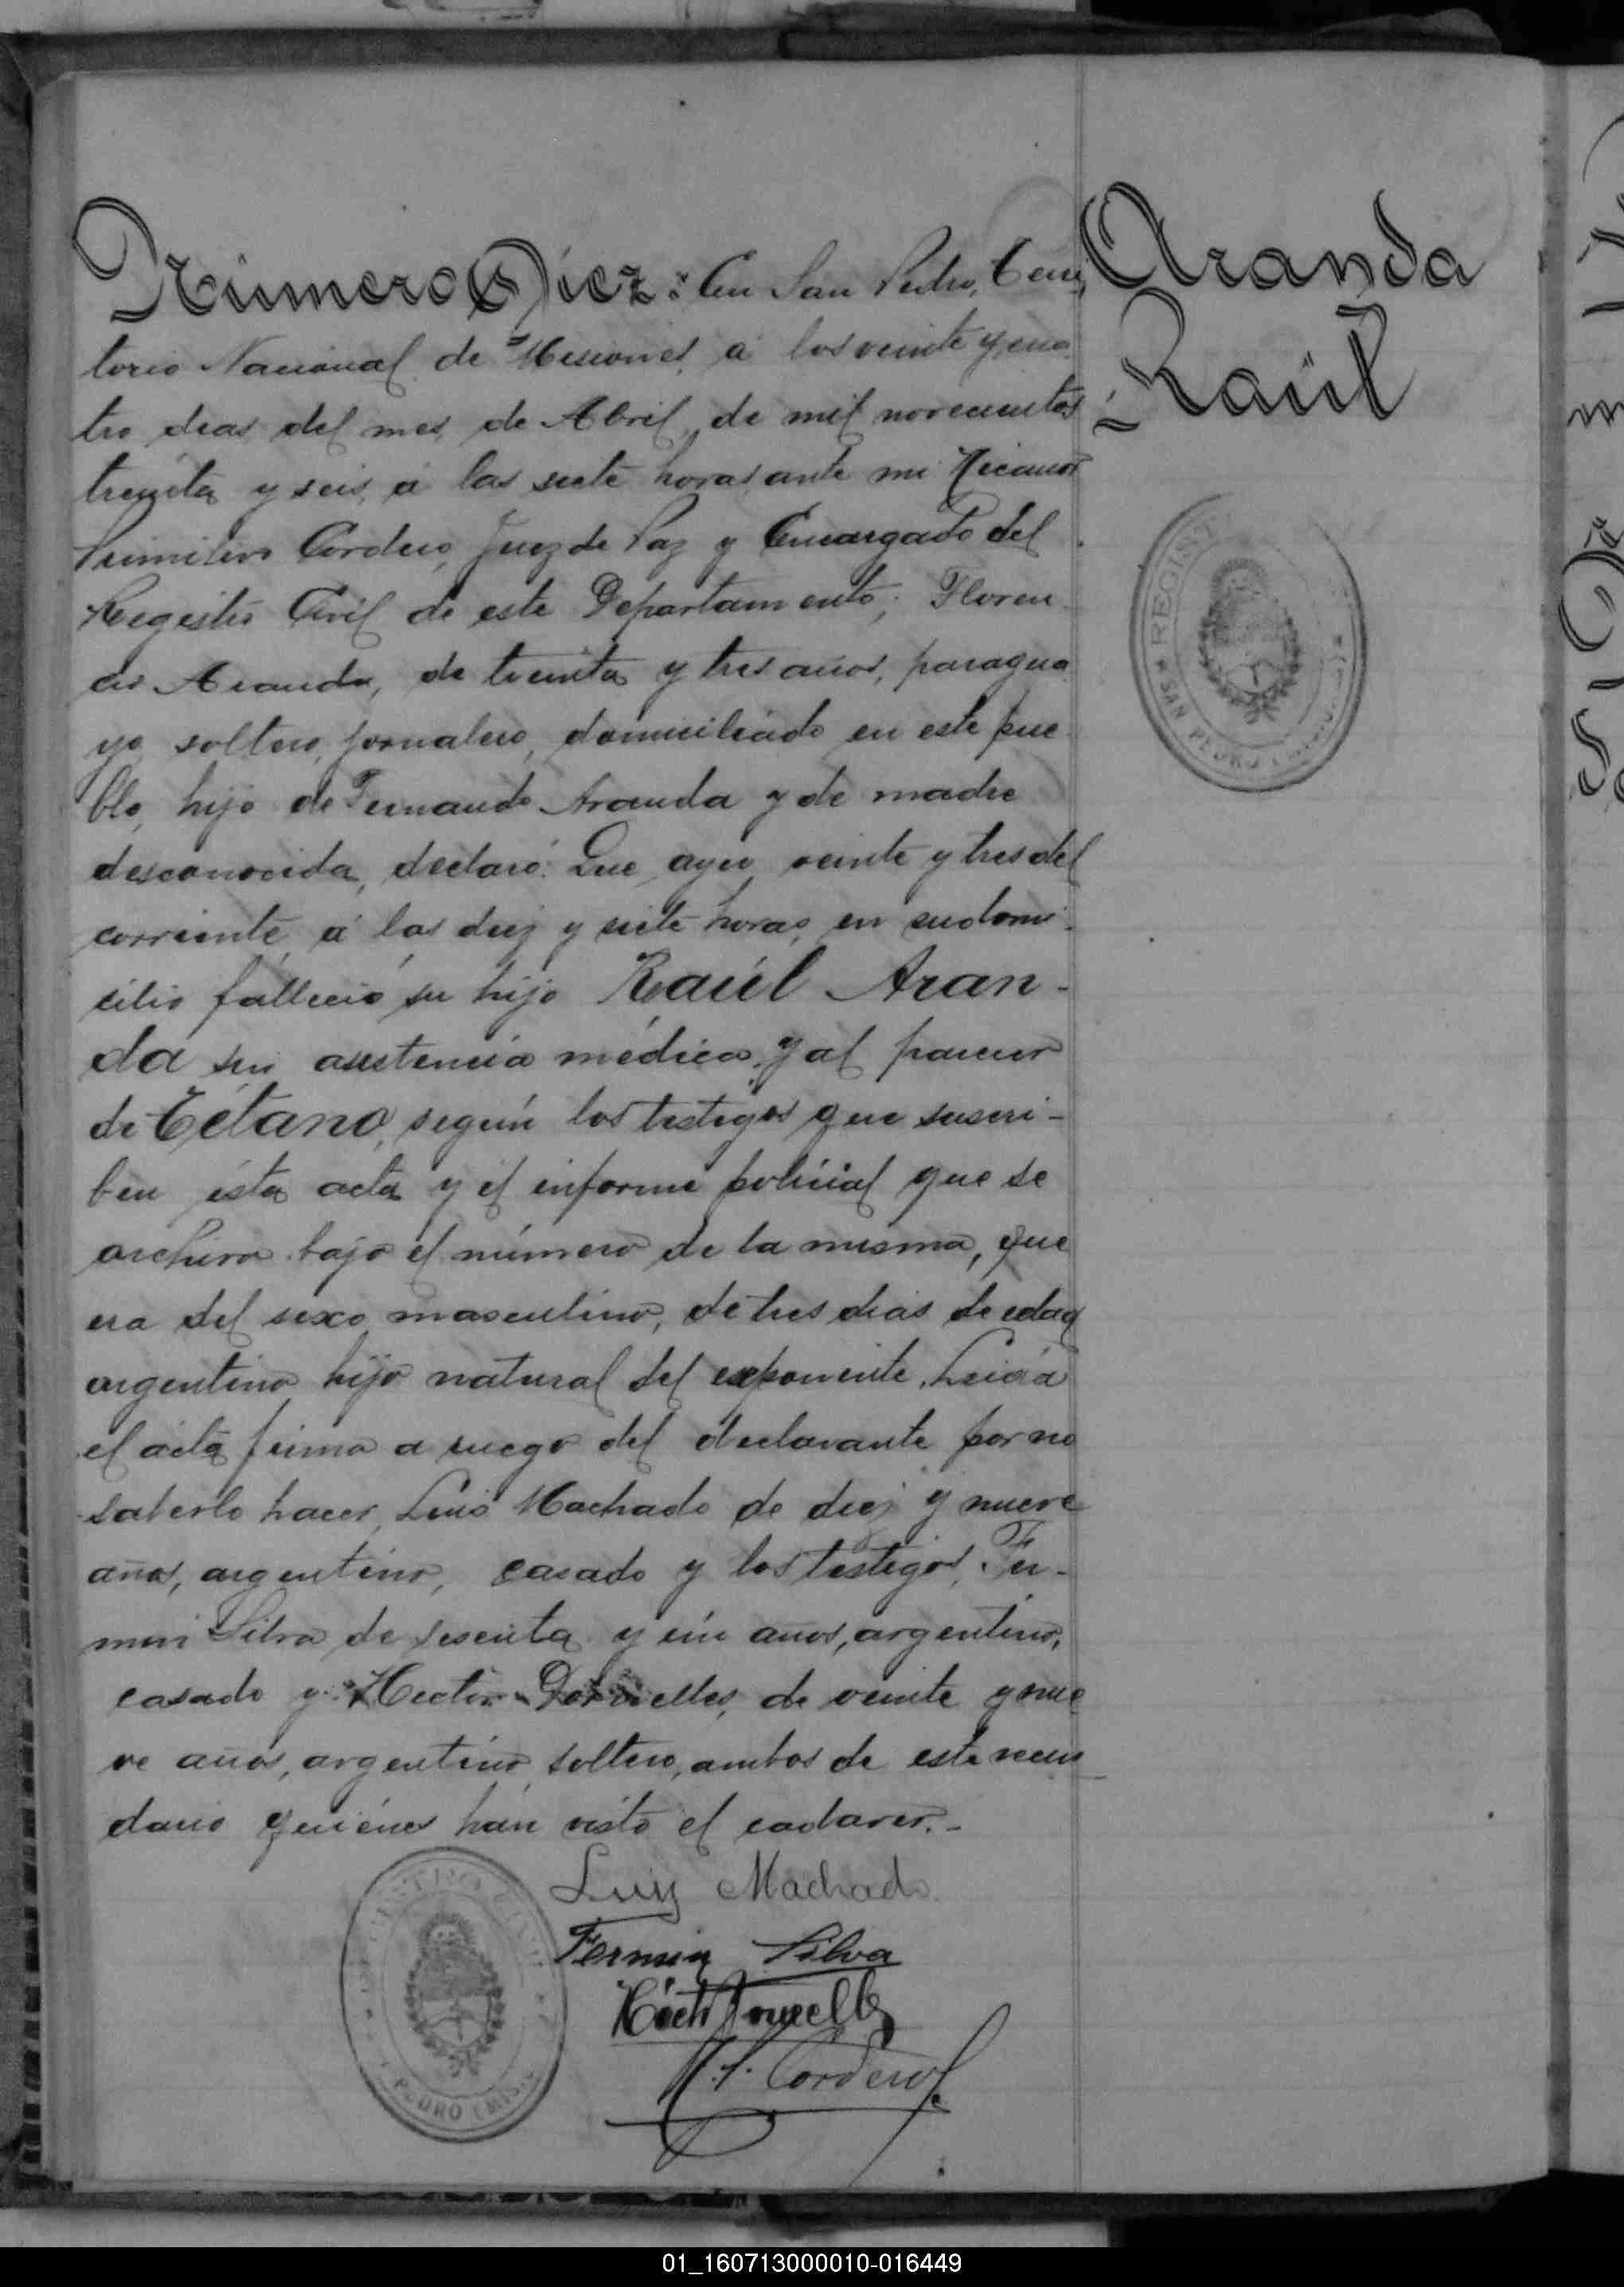 Número Diez: En San Pedro, Terri
torio Nacional de Misiones, á los veinte y cua
tro dias del mes de Abril de mil novecientos
treinta y seis, á las siete horas ante mi Nicanor
Primitivo Cordero, Juez de Paz y Encargado del
Registro Civil de este Departamento; Floren
cio Aranda, de treinta y tres años, paragua
yo, soltero, jornalero, domiciliado en este pue
blo, hijo de Fernando Aranda y de madre
desconocida, declaró: Que ayer veinte y tres del
corriente á las diez y siete horas, en su domi
cilio falleció su hijo Raúl Aran-
da sin asistencia médica, y al parecer
de Tétano, según los testigos que suscri-
ben ésta acta y el informe policial que se
archiva bajo el número de la misma, que
era del sexo masculino, de tres dias de edad
argentino hijo natural del exponente. Leida
el acta firma a ruego del declarante por no
saberlo hacer, Luis Machado de diez y nueve
años, argentino, casado y los testigos, Fer-
min Silva de sesenta y un años, argentino,
casado y Hector Dornelles, de veinte y nue
ve años, argentino, soltero, ambos de este vecin
dario quiénes hán visto el cadaver.-
Luiz Machado
Fermin Silva
Héctr Dornelles
N. P. Cordero
Aranda
Raúl
REGIST
SAN PEDRO
PEDRO (MISIO
01_160713000010-016449